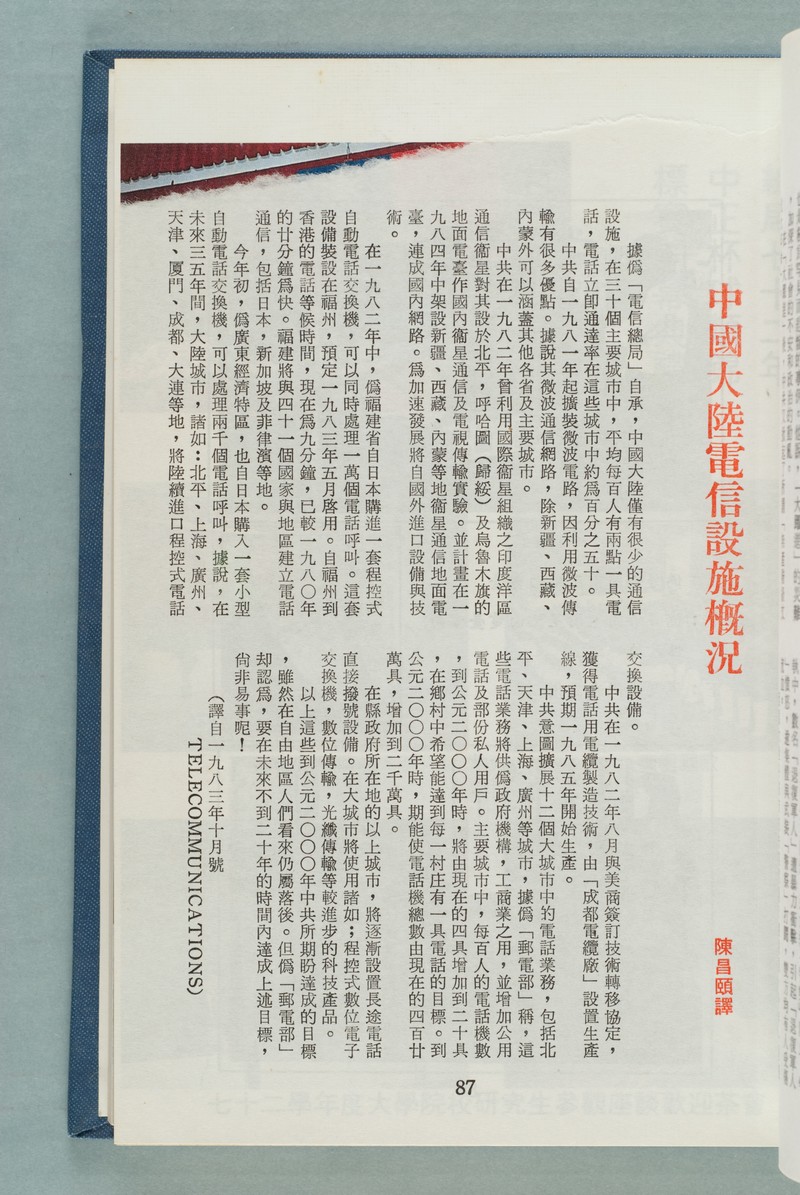 中國大陸電信設施概況
陳昌頤譯
據僞「電信總局」自承，中國大陸僅有很少的通信
設施，在三十個主要城市中，平均每百人有兩點一具電
話，電話立卽通達率在這些城市中約爲百分之五十。
中共自一九八一年起擴裝微波電路，因利用微波傳
輸有很多優點。據說其微波通信網路，除新疆、西藏、
內蒙外可以涵蓋其他各省及主要城市。
中共在一九八二年曾利用國際衞星組織之印度洋區
通信衞星對其設於北平，呼哈圖（歸綏）及烏魯木旗的
地面電臺作國內衞星通信及電視傳輸實驗。並計畫在一
九八四年中架設新疆、西藏、內蒙等地衞星通信地面電
臺，連成國內網路。爲加速發展將自國外進口設備與技
術。
在一九八二年中，僞福建省自日本購進一套程控式
自動電話交換機，可以同時處理一萬個電話呼叫。這套
設備裝設在福州，預定一九八三年五月啓用。自福州到
香港的電話等候時間，現在爲九分鐘，已較一九八〇年
的廿分鐘爲快。福建將與四十一個國家與地區建立電話
通信，包括日本，新加坡及菲律濱等地。
今年初，僞廣東經濟特區，也自日本購入一套小型
自動電話交換機，可以處理兩千個電話呼叫，據說，在
未來三五年間，大陸城市，諸如：北平、上海、廣州、
天津、厦門、成都、大連等地，將陸續進口程控式電話
交換設備。
中共在一九八二年八月與美商簽訂技術轉移協定，
獲得電話用電纜製造技術，由「成都電纜廠」設置生產
線，預期一九八五年開始生產。
中共意圖擴展十二個大城市中的電話業務，包括北
平、天津、上海、廣州等城市，據僞「郵電部」稱，這
些電話業務將供僞政府機構，工商業之用，並增加公用
電話及部份私人用戶。主要城市中，每百人的電話機數
，到公元二〇〇〇年時，將由現在的四具增加到二十具
，在鄉村中希望能達到每一村庄有一具電話的目標。到
公元二〇〇〇年時，期能使電話機總數由現在的四百廿
萬具，增加到二千萬具。
在縣政府所在地的以上城市，將逐漸設置長途電話
直接撥號設備。在大城市將使用諸如；程控式數位電子
交換機，數位傳輸，光纖傳輸等較進步的科技產品。
以上這些到公元二〇〇〇年中共所期盼達成的目標
，雖然在自由地區人們看來仍屬落後。但僞「郵電部」
却認爲，要在未來不到二十年的時間內達成上述目標，
尙非易事呢！
（譯自一九八三年十月號
TELECOMMUNICATIONS）
87